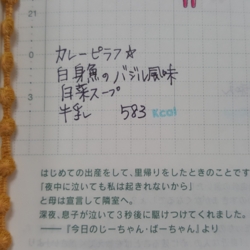 21
カレーピラフ☆
白身魚のバジル風味
白菜スープ
牛乳 583 kcal
0
3
はじめての出産をして、里帰りをしたときのことです
「夜中に泣いても私は起きれないから」
と母は宣言して隣室へ。
深夜、息子が泣いて3秒後に駆けつけてくれました。
――「今日のじーちゃん・ばーちゃん」より